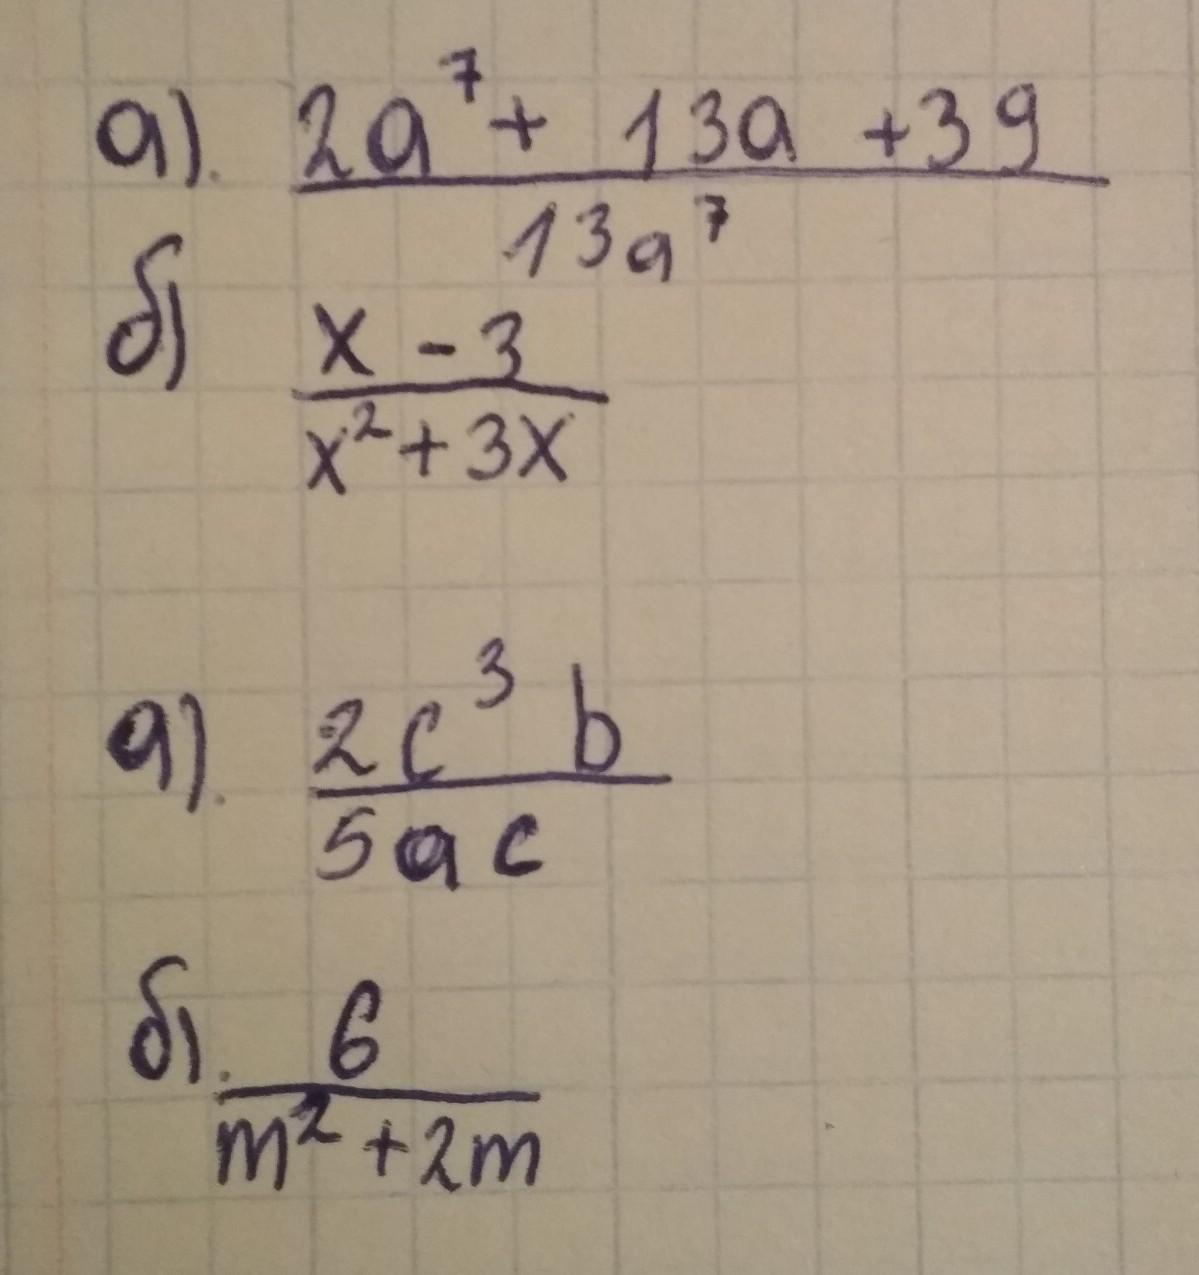 а). 2a⁷ + 13a + 39
13a⁷
б) x - 3
x² + 3x
а). 2c³ b
5ac
б). 6
m² + 2m